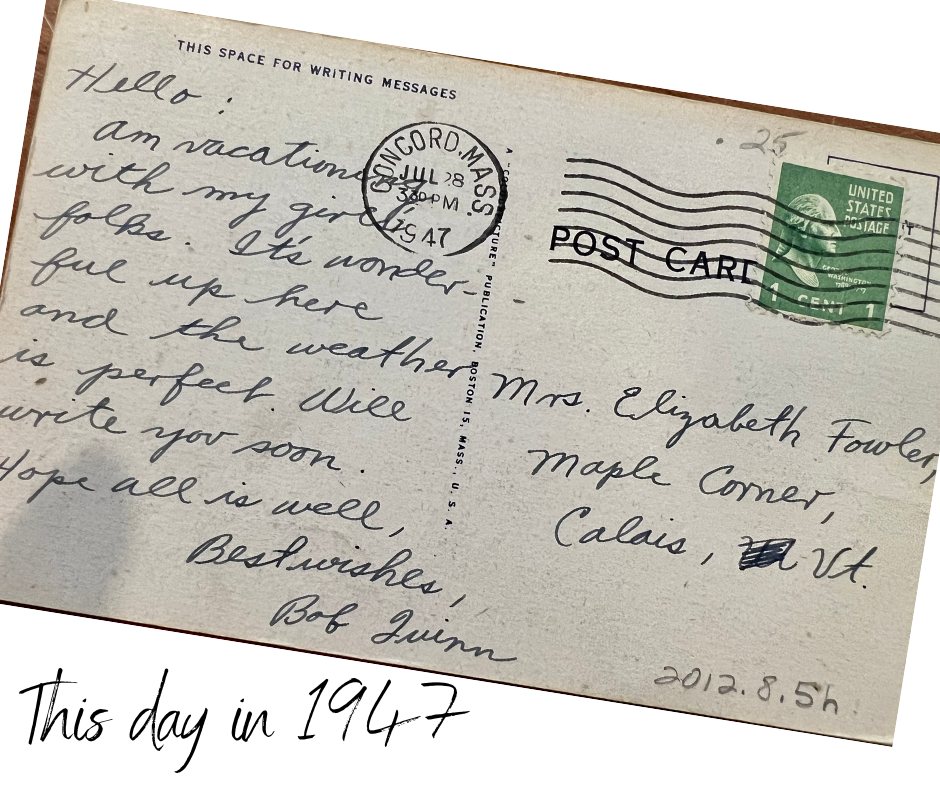 THIS SPACE FOR WRITING MESSAGES
Hello :
am vacationing
with my girl's
folks. It's wonder-
ful up here
and the weather
is perfect. Will
write you soon.
Hope all is well,
Best wishes,
Bob Quinn
CONCORD, MASS.
JUL 28
330 PM
1947
PUBLICATION, BOSTON 15, MASS., U. S. A.
.25
POST CARD
UNITED
STATES
POSTAGE
WASHINGTON
1 CENT 1
Mrs. Elizabeth Fowler,
Maple Corner,
Calais, Vt.
2012.8.5h
This day in 1947